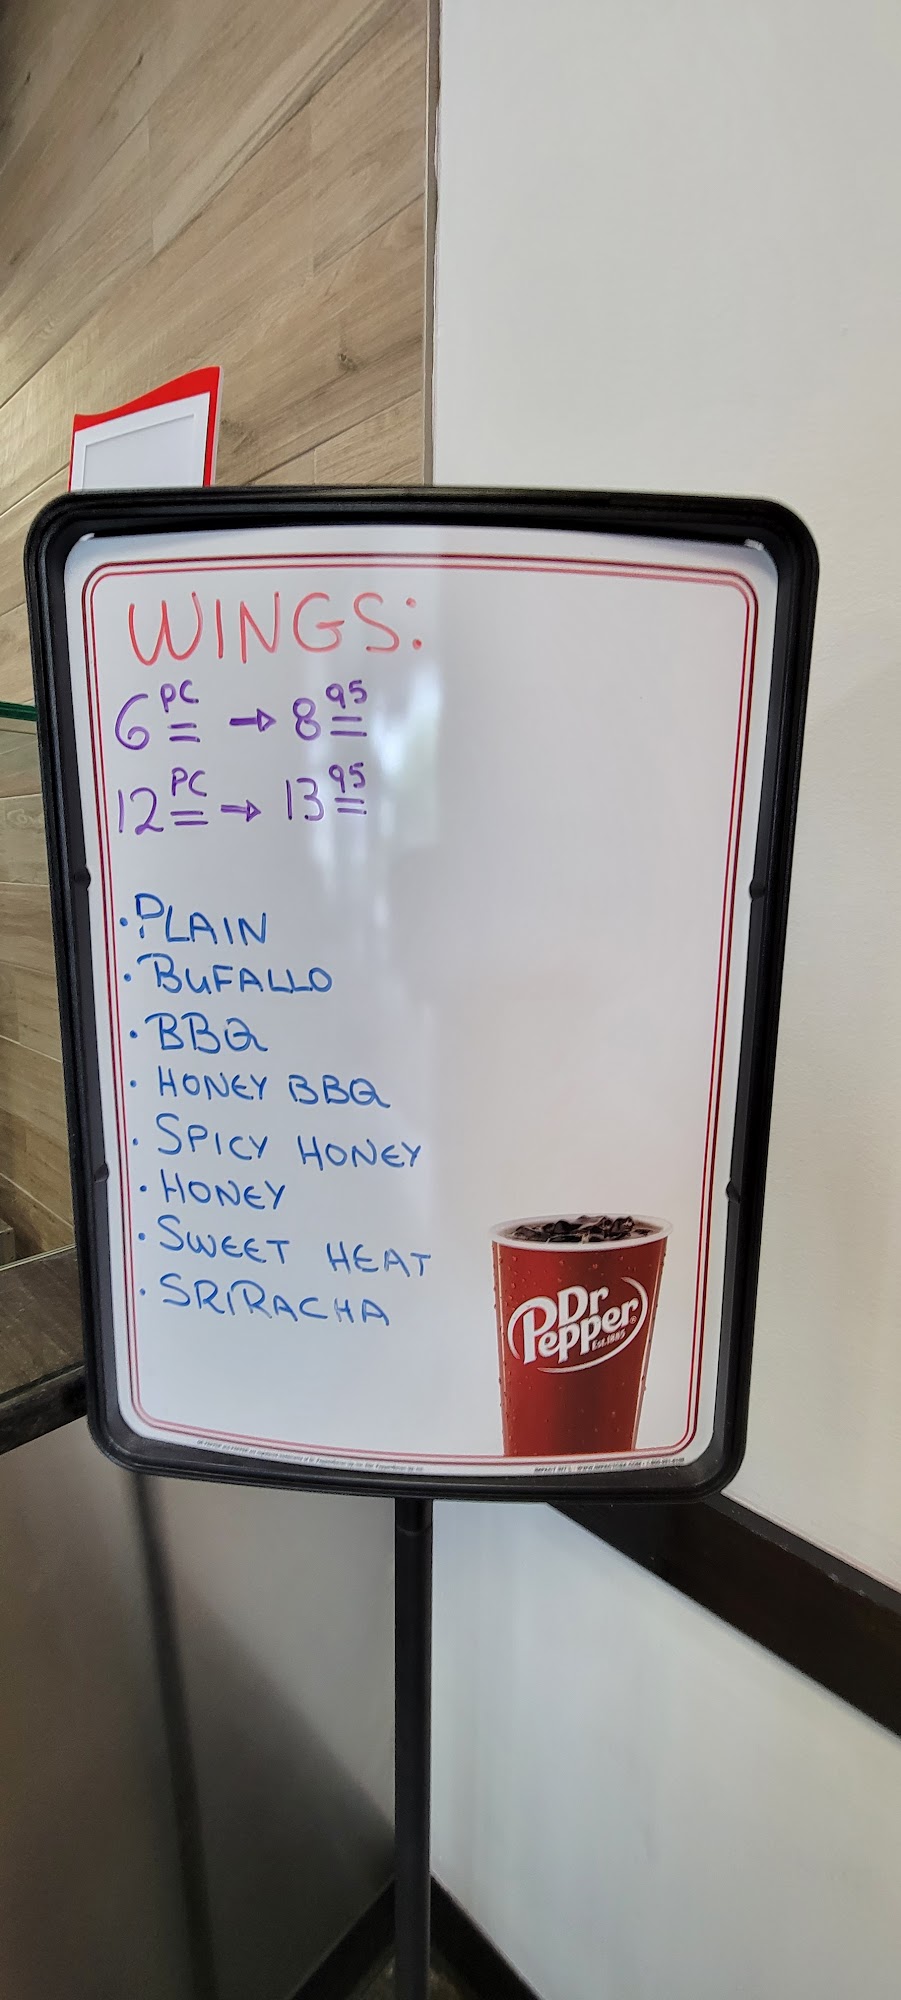 WINGS:
6 PC → 8 95
12 PC → 13 95
· PLAIN
· BUFALLO
· BBQ
· HONEY BBQ
· SPICY HONEY
· HONEY
· SWEET HEAT
· SRIRACHA
Dr
Pepper®
Est. 1885